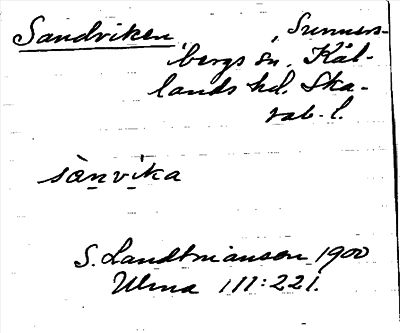 Sandviken, Sunners-
bergs sn. Kål-
lands hd. Ska-
rab. l.
sànvika
S. Landtmanson 1900
Ulma 111:221.